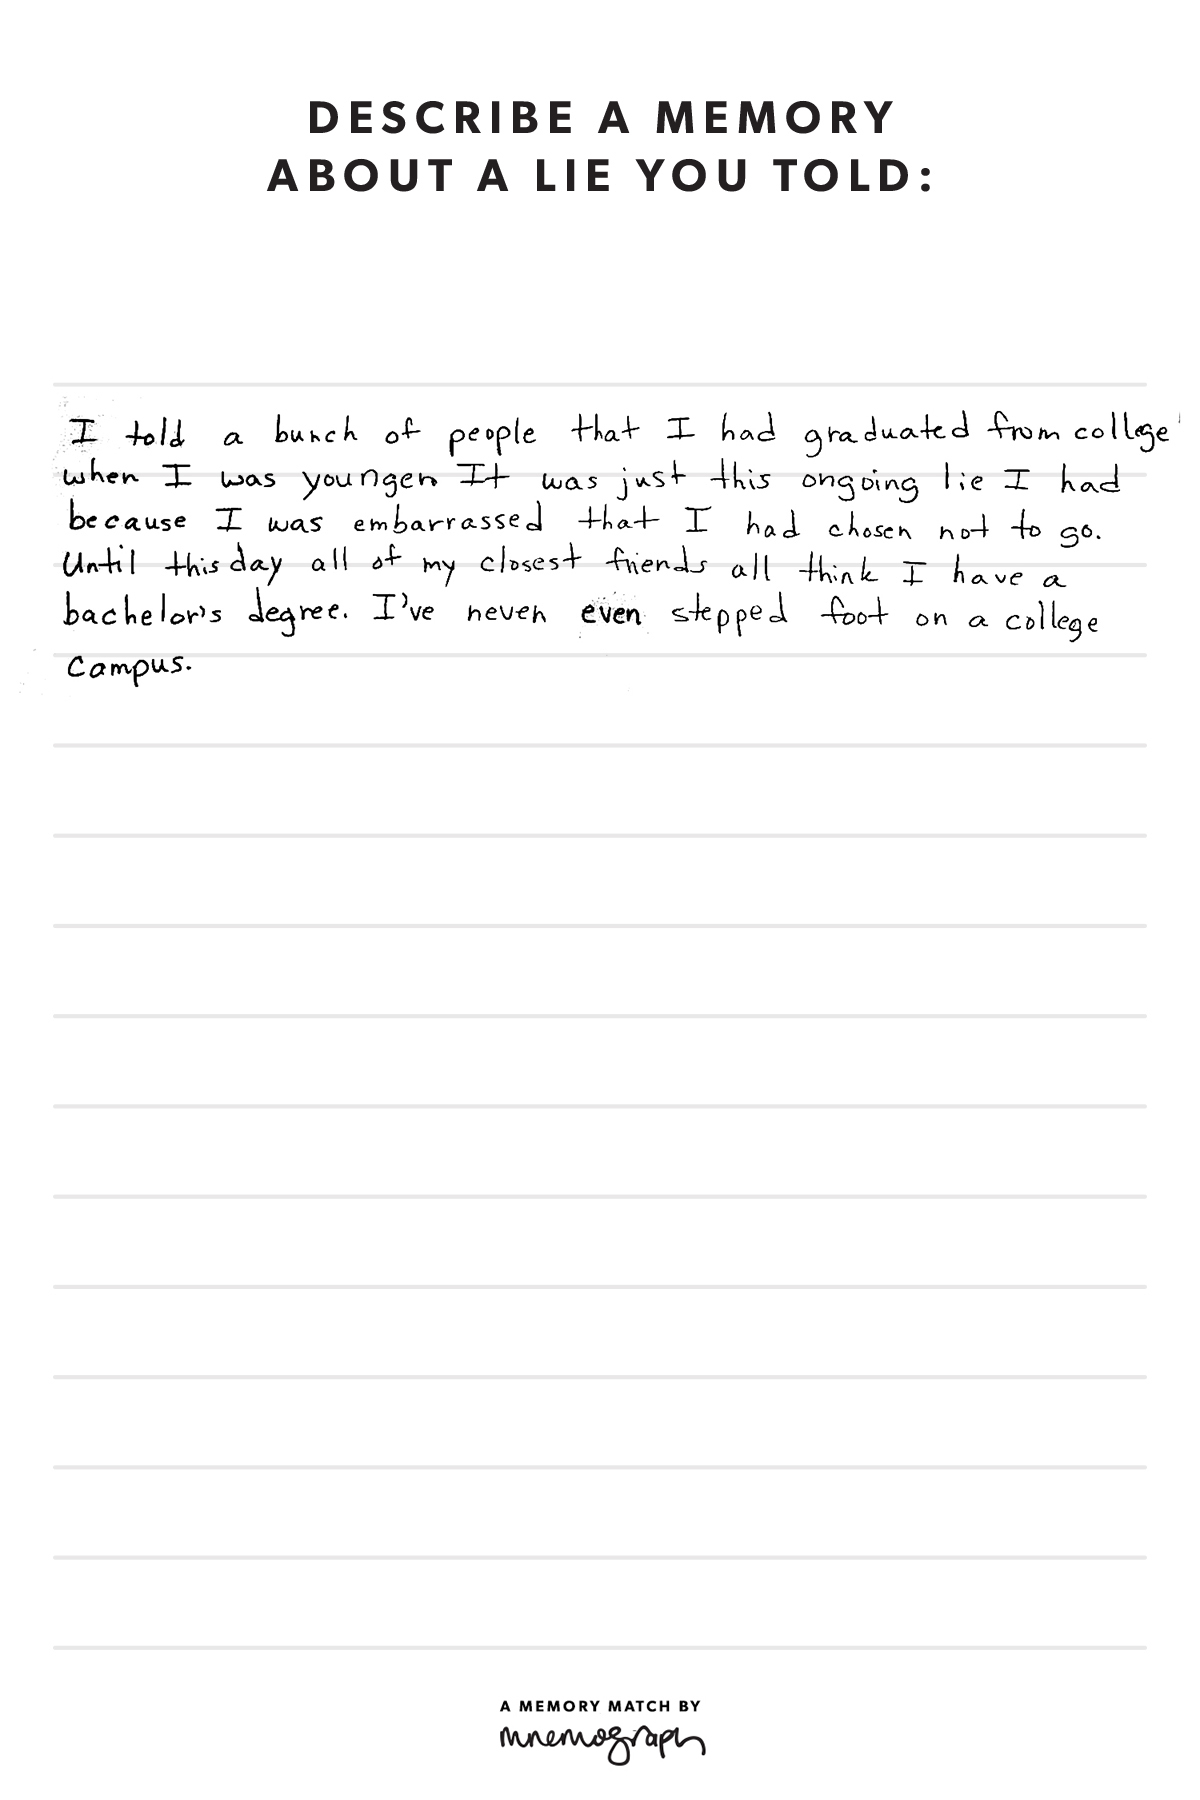 DESCRIBE A MEMORY
ABOUT A LIE YOU TOLD:
I told a bunch of people that I had graduated from college
when I was younger. It was just this ongoing lie I had
because I was embarrassed that I had chosen not to go.
Until this day all of my closest friends all think I have a
bachelor's degree. I've never even stepped foot on a college
campus.
A MEMORY MATCH BY
mnemograph